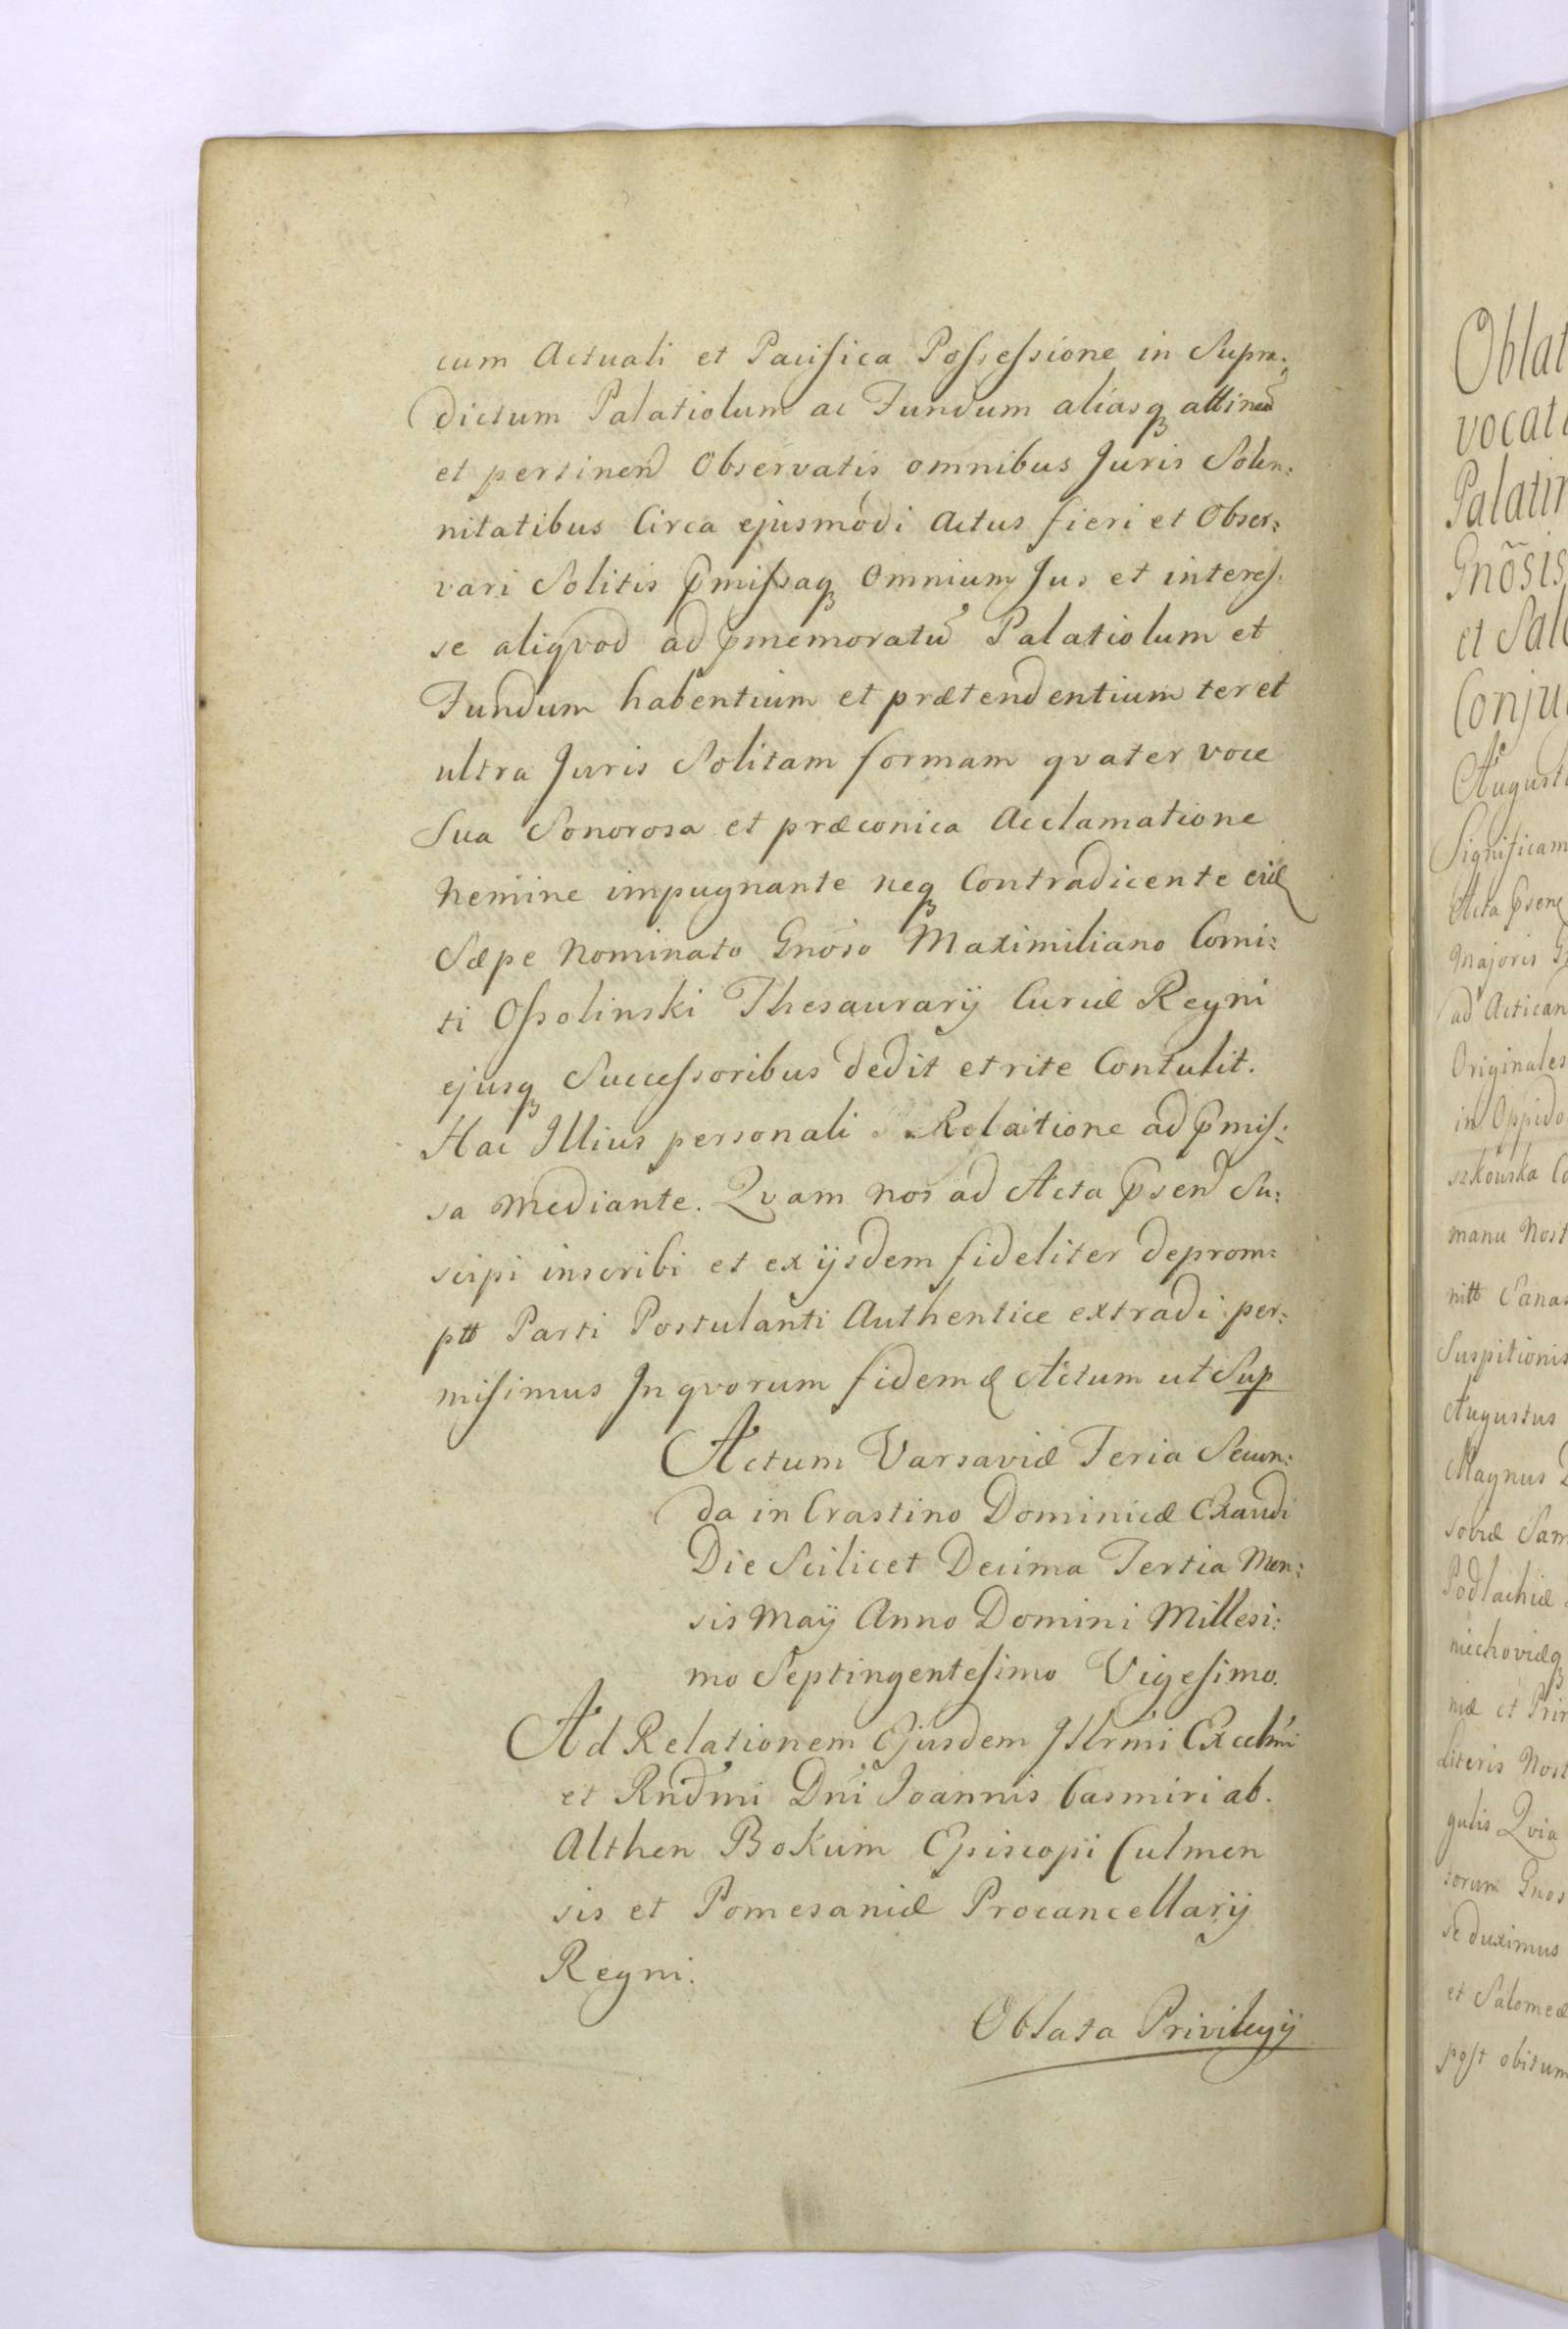 cum Actuali et Pacifica Possessione in Supra:
dictum Palatiolum ac Fundum aliasq attinen
et pertinen Observatis omnibus Juris Solen:
nitatibus Circa ejusmodi Actus fieri et Obser:
vari Solitis Pmissaq Omnium Jus et interes:
se aliqvod ad pmemoratũ Palatiolum et
Fundum habentium et prætendentium ter et
ultra Juris Solitam formam qvater voce
Sua Sonorosa et præconica Acclamatione
Nemine impugnante neq Contradicente
Sæpe Nominato Gnoso Maximiliano Comi:
ti Ossolinski Thesaurarij Curiæ Regni
ejusq Successoribus dedit et rite Contulit.
Hac Illius personali Relatione ad Pmis:
sa Mediante. Qvam nos ad Acta Psen Su:
scipi inscribi et ex ijsdem fideliter deprom:
ptt Parti Postulanti Authentice extradi per:
misimus In qvorum fidem & Actum ut Sup
Actum Varsaviæ Feria Secun:
da in Crastino Dominicæ Exaudi
Die Scilicet Decima Tertia Men:
sis Maij Anno Domini Millesi:
mo Septingentesimo Vigesimo.
Ad Relationem Ejusdem Illrmi Excellmi
et Rndmi Dni Joannis Casmiri ab.
Althen Bokum Episcopi Culmen
sis et Pomesaniæ Procancellarij
Regni.
Oblata Privilegij
Oblat
vocat
Palatin
Gnõsis
et Sal
Conju
August
Significam
Acta Psen
Majoris G
ad Actican
Originales
in Oppido
szkowska Co
manu Nost
nitt Sana
Suspitionis
Augustus
Magnus D
soviæ Sam
Podlachiæ
niechoviæq
niæ et Prin
Literis Nost
gulis Qvia
torum Gnos
se duximus
et Salomeæ
post obitum